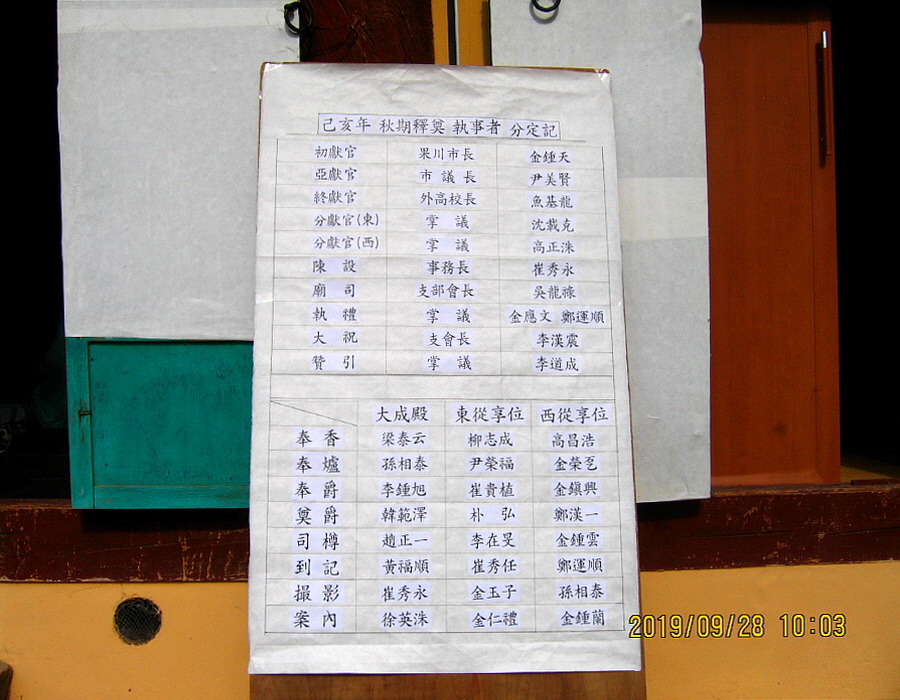 己亥年 秋期釋奠 執事者 分定記
初獻官 果川市長 金鍾天
亞獻官 市議長 尹美賢
終獻官 外高校長 魚基龍
分獻官(東) 掌議 沈載克
分獻官(西) 掌議 高正洙
陳設 事務長 崔秀永
廟司 支部會長 吳龍祿
執禮 掌議 金應文 鄭運順
大祝 支會長 李漢震
贊引 掌議 李道成
大成殿 東從享位 西從享位
奉香 梁泰云 柳志成 高昌浩
奉爐 孫相泰 尹榮福 金榮
奉爵 李鍾旭 崔貴植 金鎭興
奠爵 韓範澤 朴弘 鄭漢一
司樽 趙正一 李在旻 金鍾雲
到記 黃福順 崔秀任 鄭運順
撮影 崔秀永 金玉子 孫相泰
案內 徐英洙 金仁禮 金鍾蘭
2019/09/28 10:03